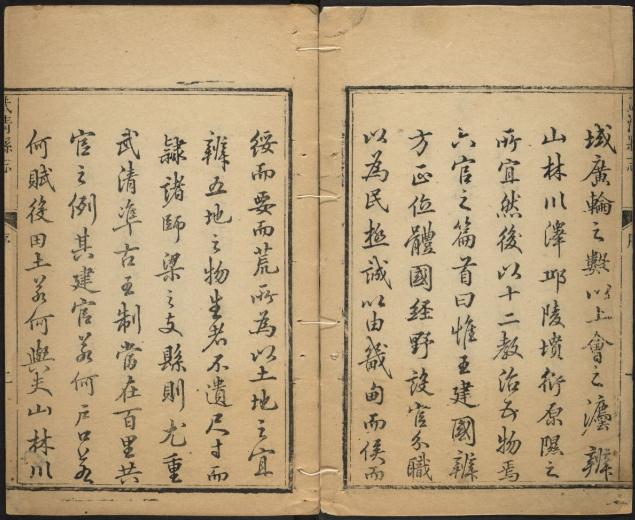 域廣輪之數以土會之灋辨
山林川澤邱陵墳衍原隰之
所宜然後以十二教治五物焉
六官之篇首曰惟王建國辨
方正位體國經野設官分職
以為民極誠以由畿甸而侯而
綏而要而荒所為以土地之宜
辨五地之物生者不遺尺寸而
隸諸師梁之支縣則尤重
武清準古王制當在百里共
官之例其建官若何戶口若
何賦役田土若何與夫山林川
武清縣志
序